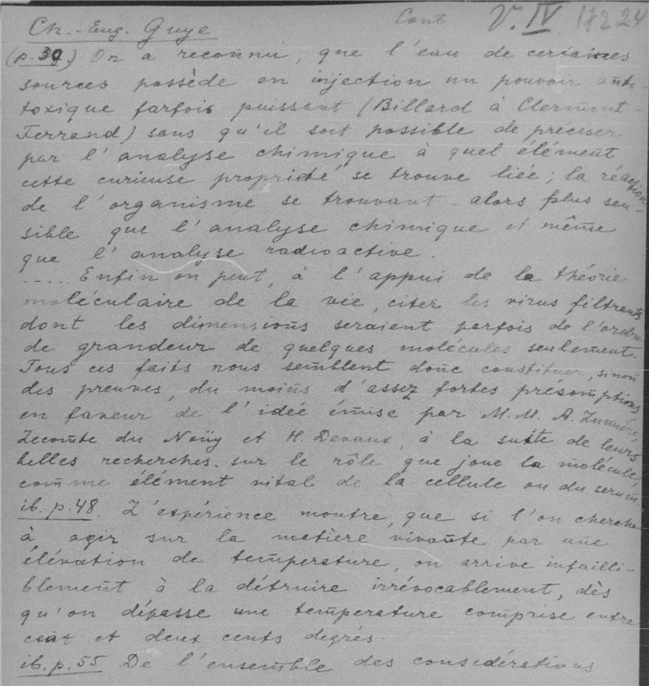 Ch.-Eug. Guye Cont V. IV 17224
(p. 39.) On a reconnu, que l'eau de certaines
sources possède en injection un pouvoir anti-
toxique parfois puissant (Billard à Clermont-
Ferrand) sans qu'il soit possible de préciser
par l'analyse chimique à quel élément
cette curieuse propriété se trouve liée; la réaction
de l'organisme se trouvant alors plus sen-
sible que l'analyse chimique et même
que l'analyse radioactive.
..... Enfin on peut, à l'appui de la théorie
moléculaire de la vie, citer les virus filtrants
dont les dimensions seraient parfois de l'ordre
de grandeur de quelques molécules seulement.
Tous ces faits nous semblent donc constituer, sinon
des preuves, du moins d'assez fortes présomptions
en faveur de l'idée émise par M.M. A.
Lecomte du Noüy et H. Devaux, à la suite de leurs
belles recherches sur le rôle que joue la molécule,
comme élément vital de la cellule ou du serum.
ib. p. 48. L'expérience montre, que si l'on cherche
à agir sur la matière vivante par une
élévation de température, on arrive infailli-
blement à la détruire irrévocablement, dès
qu'on dépasse une temperature comprise entre
cent et deux cents degrés.
ib. p. 55 De l'ensemble des considérations